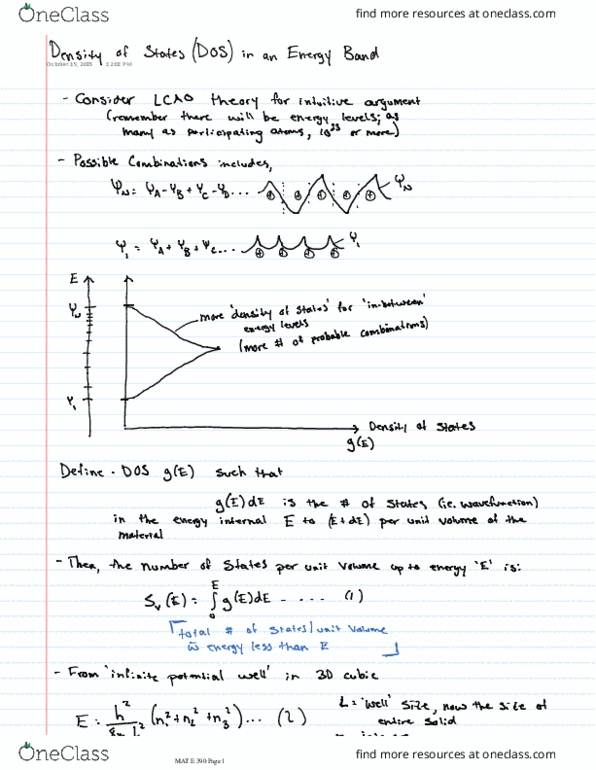 OneClass
find more resources at oneclass.com
Density of States (DOS) in an Energy Band
October 15, 2005 12:02 PM
- Consider LCAO theory for intuitive argument
(remember there will be energy levels; as
many as participating atoms, 10²³ or more)
- Possible Combinations includes,
Ψ_N = Ψ_A - Ψ_B + Ψ_C - Ψ_D ... Ψ_N
Ψ₁ = Ψ_A + Ψ_B + Ψ_C ... Ψ₁
E
Ψ_N
more 'density of states' for 'in-between'
energy levels
(more # of probable combinations)
Ψ₁
Density of States
g(E)
Define - DOS g(E) such that
g(E)dE is the # of states (ie. wavefunction)
in the energy internal E to (E+dE) per unit volume of the
material
- Then, the number of States per unit volume up to energy 'E' is:
S_v(E) = ∫₀^E g(E)dE - .... (1)
total # of states/unit volume
w̄ energy less than E
- From 'infinite potential well' in 3D cubic
E = h²/8mL² (n₁² + n₂² + n₃²) ... (2)
L = 'well' size, now the size of
entire solid
OneClass
MAT E 390 Page 1
find more resources at oneclass.com